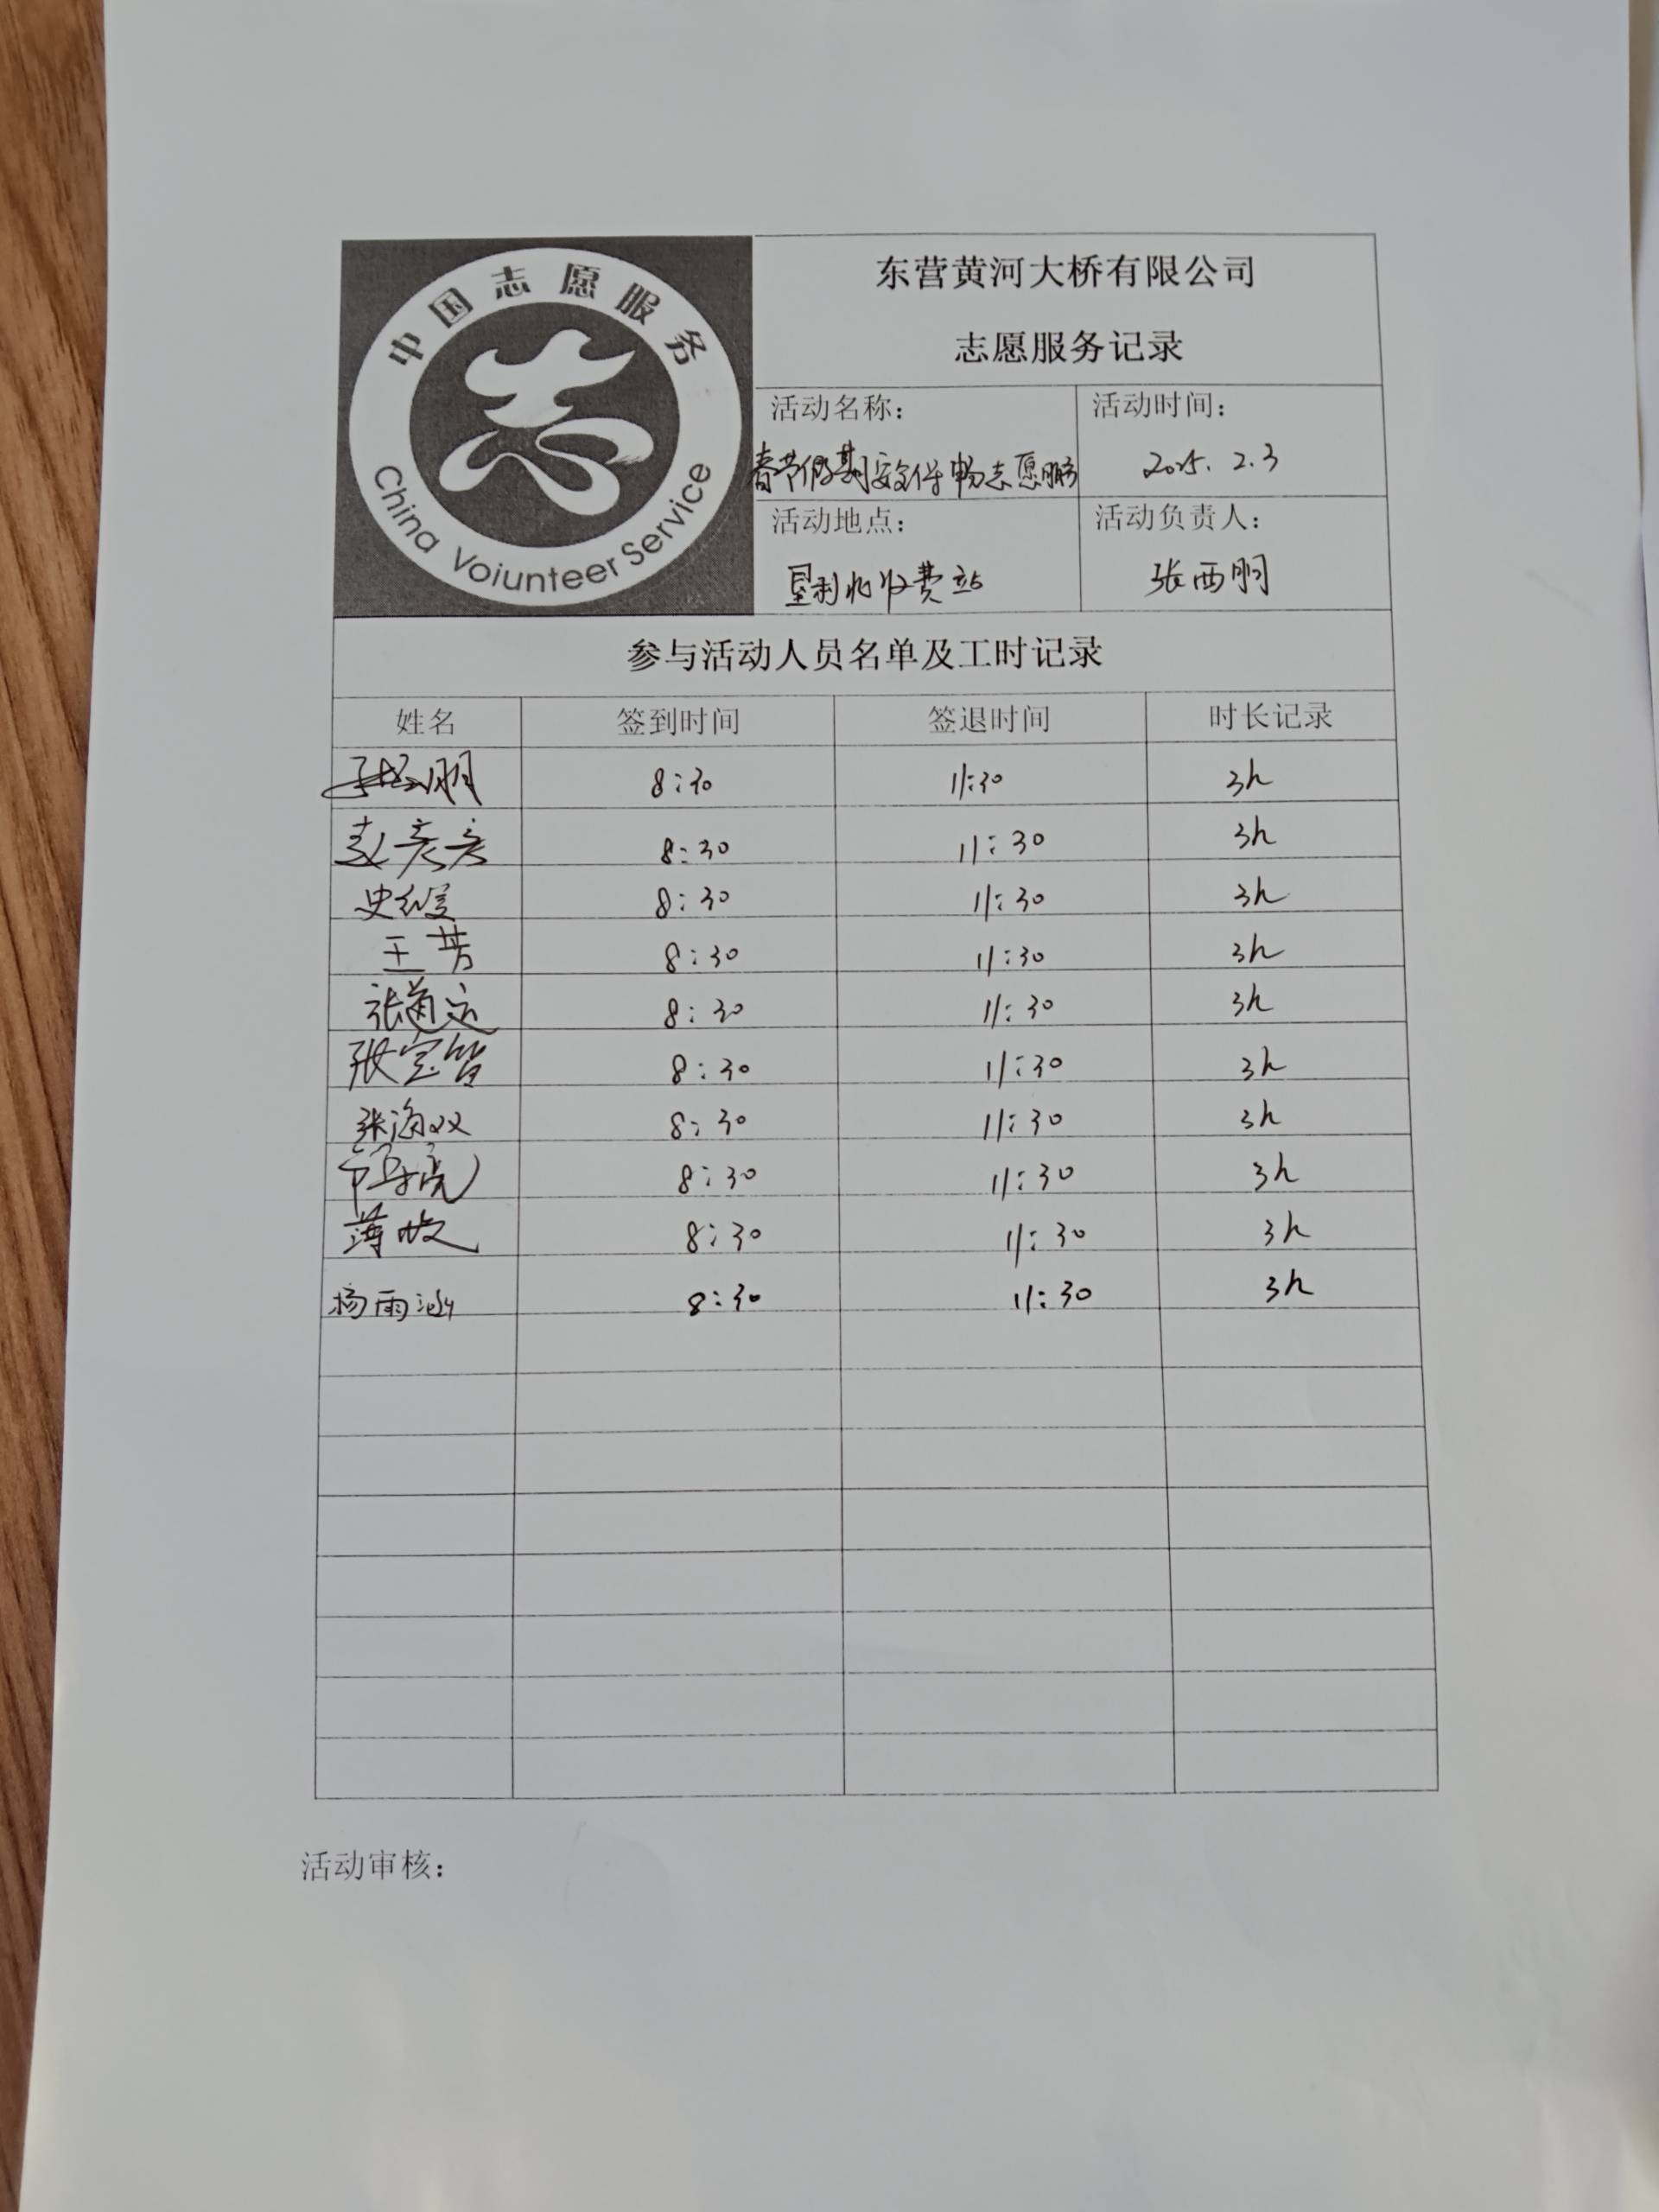 中国志愿服务
China Voiunteer Service
东营黄河大桥有限公司
志愿服务记录
活动名称：
春节假期安全保畅志愿服务
活动时间：
2025.2.3
活动地点：
垦利北收费站
活动负责人：
张西朋
参与活动人员名单及工时记录
姓名 签到时间 签退时间 时长记录
8:30 11:30 3h
赵彦彦 8:30 11:30 3h
史 8:30 11:30 3h
王芳 8:30 11:30 3h
张 8:30 11:30 3h
张宝 8:30 11:30 3h
张海双 8:30 11:30 3h
8:30 11:30 3h
薄 8:30 11:30 3h
杨雨涵 8:30 11:30 3h
活动审核：